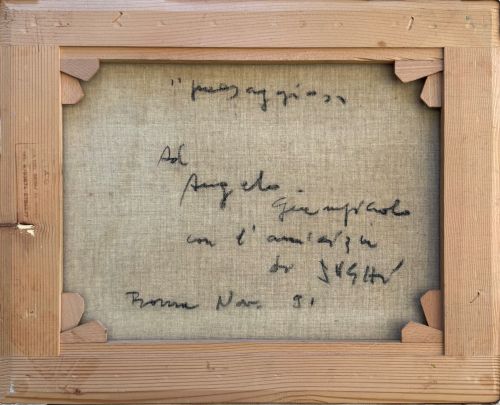 "paesaggio",
Ad
Angelo
Giampaolo
con l'amicizia
di SUGHI
Roma Nov. 91